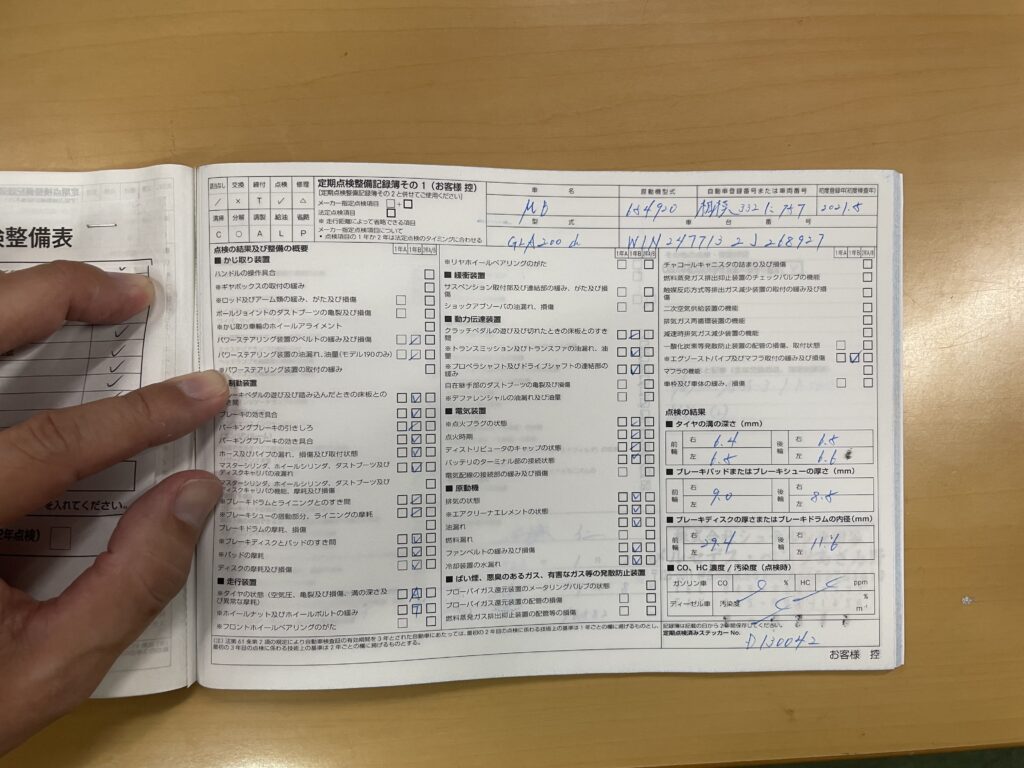 検整備表
を入れてください。
2年点検)
該当なし 交換 締付 点検 修理
／ × T ✓ △
清掃 分解 調整 給油 省略
C ○ A L P
定期点検整備記録簿その1(お客様 控)
[定期点検整備記録簿その2と併せてご使用ください]
メーカー指定点検項目 □+□
法定点検項目 □
※ 走行距離によって省略できる項目
メーカー指定点検項目について
・点検項目の1年か2年は法定点検のタイミングに合わせる
車 名
MB
原動機型式
654920
自動車登録番号または車両番号
相模 332
初度登録年(初度検査年)
2021.8
型 式
GLA200d
車 台 番 号
W1N2477132J268927
点検の結果及び整備の概要
■ かじ取り装置
ハンドルの操作具合
※ギヤボックスの取付の緩み
※ロッド及びアーム類の緩み、がた及び損傷
ボールジョイントのダストブーツの亀裂及び損傷
※かじ取り車輪のホイールアライメント
パワーステアリング装置のベルトの緩み及び損傷
パワーステアリング装置の油漏れ、油量(モデル190のみ)
※パワーステアリング装置の取付の緩み
制動装置
ブレーキペダルの遊び及び踏み込んだときの床板とのすき間
ブレーキの効き具合
パーキングブレーキの引きしろ
パーキングブレーキの効き具合
ホース及びパイプの漏れ、損傷及び取付状態
マスターシリンダ、ホイールシリンダ、ダストブーツ及び
ディスクキャリパの液漏れ
マスターシリンダ、ホイールシリンダ、ダストブーツ及び
ディスクキャリパの機能、摩耗及び損傷
※ブレーキドラムとライニングとのすき間
※ブレーキシューの摺動部分、ライニングの摩耗
ブレーキドラムの摩耗、損傷
※ブレーキディスクとパッドのすき間
※パッドの摩耗
ディスクの摩耗及び損傷
■ 走行装置
※タイヤの状態(空気圧、亀裂及び損傷、溝の深さ及
び異常な摩耗) A
※ホイールナット及びホイールボルトの緩み T
※フロントホイールベアリングのがた
1年A 1年B 2年A/B
※リヤホイールベアリングのがた
■ 緩衝装置
サスペンション取付部及び連結部の緩み、がた及び損
傷
ショックアブソーバの油漏れ、損傷
■ 動力伝達装置
クラッチペダルの遊び及び切れたときの床板とのすき
間
※トランスミッション及びトランスファの油漏れ、油
量
※プロペラシャフト及びドライブシャフトの連結部の
緩み
自在継手部のダストブーツの亀裂及び損傷
※デファレンシャルの油漏れ及び油量
■ 電気装置
※点火プラグの状態
点火時期
ディストリビュータのキャップの状態
バッテリのターミナル部の接続状態
電気配線の接続部の緩み及び損傷
■ 原動機
排気の状態
※エアクリーナエレメントの状態
油漏れ
燃料漏れ
ファンベルトの緩み及び損傷
冷却装置の水漏れ
■ ばい煙、悪臭のあるガス、有害なガス等の発散防止装置
ブローバイガス還元装置のメータリングバルブの状態
ブローバイガス還元装置の配管の損傷
燃料蒸発ガス排出抑止装置の配管等の損傷
1年A 1年B 2年A/B
チャコールキャニスタの詰まり及び損傷
燃料蒸発ガス排出抑止装置のチェックバルブの機能
触媒反応方式等排出ガス減少装置の取付の緩み及び損
傷
二次空気供給装置の機能
排気ガス再循環装置の機能
減速時排気ガス減少装置の機能
一酸化炭素等発散防止装置の配管の損傷、取付状態
※エグゾーストパイプ及びマフラ取付の緩み及び損傷
マフラの機能
車枠及び車体の緩み、損傷
点検の結果
■ タイヤの溝の深さ(mm)
前輪 右 6.4 後輪 右 6.8
左 6.8 左 6.6
■ ブレーキパッドまたはブレーキシューの厚さ(mm)
前輪 右 左 9.0 後輪 右 左 8.8
■ ブレーキディスクの厚さまたはブレーキドラムの内径(mm)
前輪 右 左 29.4 後輪 右 左 11.6
■ CO、HC濃度/汚染度(点検時)
ガソリン車 CO % HC ppm
ディーゼル車 汚染度 % m⁻¹
記録簿は記載の日から2年間保存してください。
定期点検済みステッカー No.
D130042
(注)法第61条第2項の規定により自動車検査証の有効期間を3年とされた自動車にあたっては、最初の2年目の点検に係わる技術上の基準は1年ごとの欄に掲げるものとし、
最初の3年目の点検に係わる技術上の基準は2年ごとの欄に掲げるものとする。
お客様 控